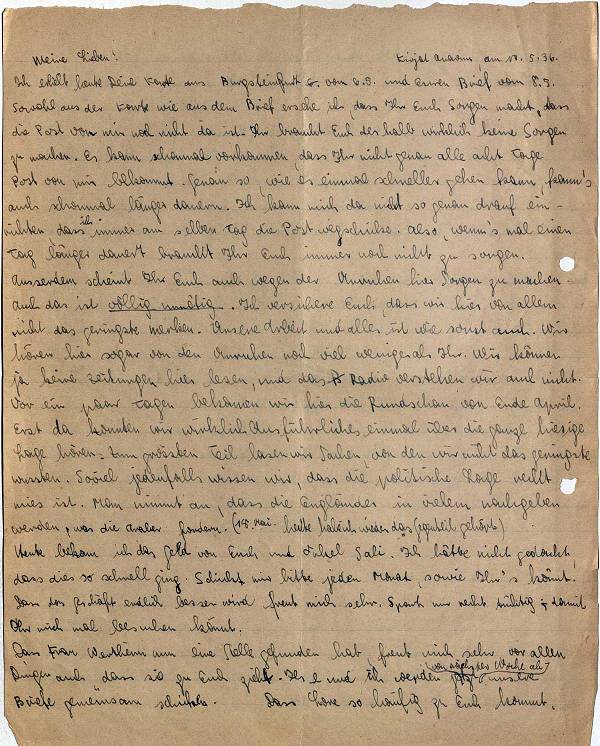 Meine Lieben! Kirjat Anavim, am 10.5.36.
Ich erhielt heute Deine Karte aus Burgsteinfurt vom 6.5. und Euren Brief vom 8.5.
Sowohl aus der Karte wie aus dem Brief ersehe ich, dass Ihr Euch Sorgen macht, dass
die Post von mir noch nicht da ist. Ihr braucht Euch deshalb wirklich keine Sorgen
zu machen. Es kann schonmal vorkommen, dass Ihr nicht genau alle acht Tage
Post von mir bekommt. Genau so, wie es einmal schneller gehen kann, kann's
auch schonmal länger dauern. Ich kann mich da nicht so genau drauf ein-
richten dass ich immer am selben Tag die Post wegschicke. Also, wenn's mal einen
Tag länger dauert braucht Ihr Euch immer noch nicht zu sorgen.
Ausserdem scheint Ihr Euch auch wegen der Unruhen hier Sorgen zu machen.
Auch das ist völlig unnötig. Ich versichere Euch, dass wir hier von allem
nicht das geringste merken. Unsere Arbeit und alles ist wie sonst auch. Wir
hören hier sogar von den Unruhen noch viel weniger als Ihr. Wir können
ja keine Zeitungen hier lesen, und das Radio verstehen wir auch nicht.
Vor ein paar Tagen bekamen wir hier die Rundschau von Ende April.
Erst da konnten wir wirklich Ausführliches einmal über die ganze hiesige
Lage hören. Zum grössten Teil lasen wir Sachen, von den wir nicht das geringste
wussten. Soviel jedenfalls wissen wir, dass die politische Lage recht
mies ist. Man nimmt an, dass die Engländer in vielem nachgeben
werden, was die Araber fordern. (18. Mai. heute habe ich wieder das Gegenteil gehört)
Heute bekam ich das Geld von Euch und Onkel Sali. Ich hätte nicht gedacht,
dass dies so schnell ging. Schickt mir bitte jeden Monat, sowie Ihr's könnt.
Dass das Geschäft endlich besser wird freut mich sehr. Spart nur recht tüchtig, damit
Ihr mich mal besuchen könnt.
Dass Frau Wertheim nun eine Stelle gefunden hat freut mich sehr, vor allen
Dingen auch dass sie zu Euch zieht. und ich werden jetzt (von nächster Woche ab) unsere
Briefe gemeinsam schicken. Dass Lore so häufig zu Euch kommt,